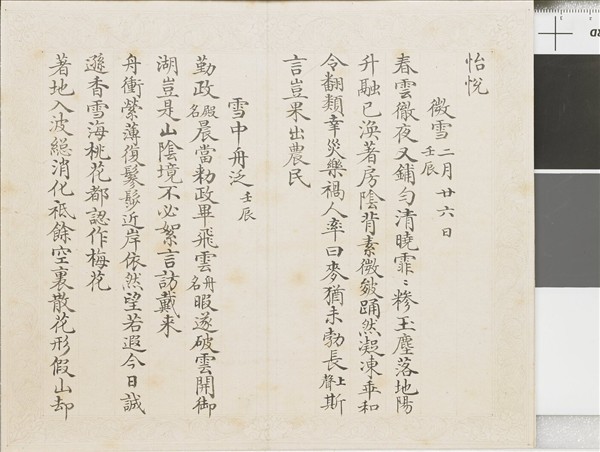 怡悅
微雪 壬辰 二月廿六日
春雲徹夜又鋪勻清曉霏〻糝玉塵落地陽
升融已渙著房陰背素微皴踊然凝凍乖和
令翻類幸災樂禍人率曰麥猶未勃長上聲斯
言豈果出農民
雪中舟泛 壬辰
勤政殿名晨當勑政畢飛雲舟名暇遂破雲開御
湖豈是山陰境不必絮言訪戴來
舟衝縈薄復鬖髿近岸依然望若遐今日誠
遜香雪海桃花都認作梅花
著地入波總消化祗餘空裏散花形假山却